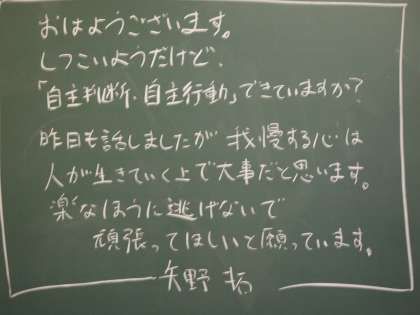 おはようございます。
しつこいようだけど、
「自主判断、自主行動」できていますか？
昨日も話しましたが 我慢する心は
人が生きていく上で大事だと思います。
楽なほうに逃げないで
頑張ってほしいと願っています。
矢野 拓